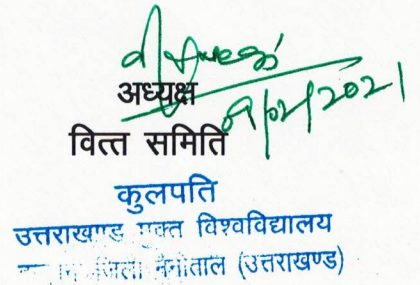 अध्यक्ष
वित्त समिति
/02/2021
कुलपति
उत्तराखण्ड मुक्त विश्वविद्यालय
जिला नैनीताल (उत्तराखण्ड)